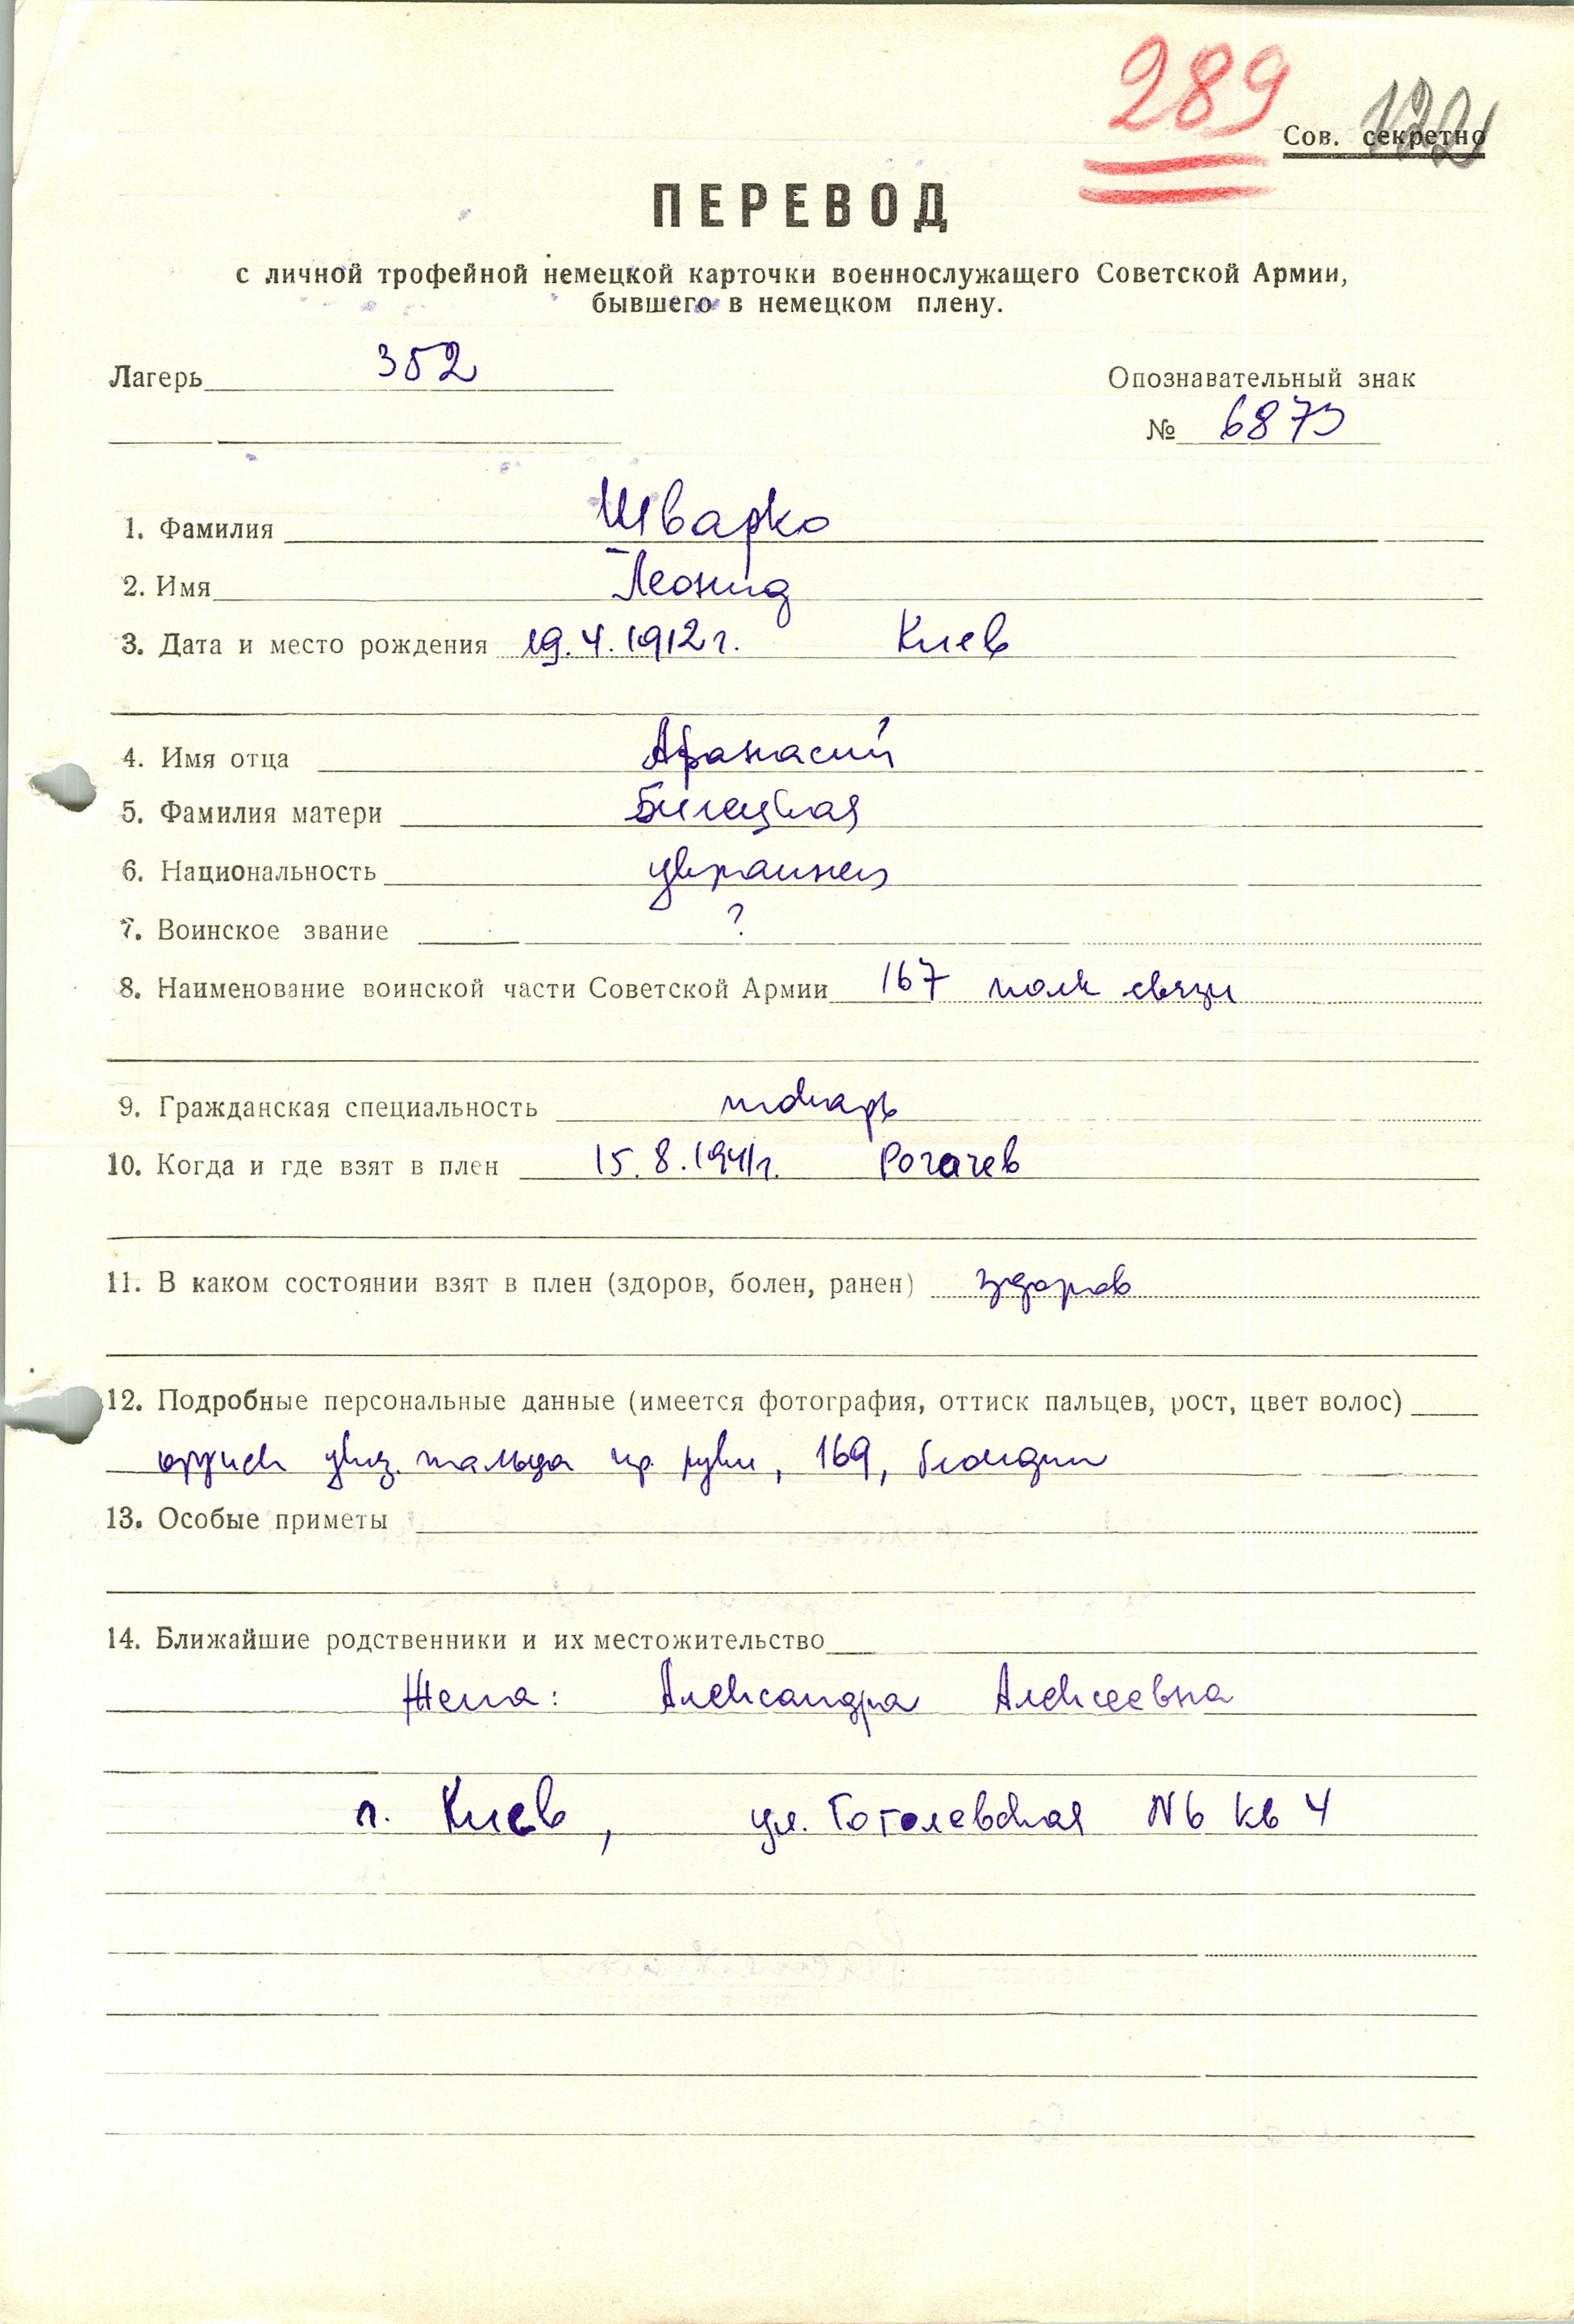 289
122
Сов. секретно
ПЕРЕВОД
с личной трофейной немецкой карточки военнослужащего Советской Армии,
бывшего в немецком плену.
Лагерь 352
Опознавательный знак
№ 6873
1. Фамилия Шварко
2. Имя Леонид
3. Дата и место рождения 19.4.1912г. Киев
4. Имя отца Афанасий
5. Фамилия матери Билецкая
6. Национальность украинец
7. Воинское звание ?
8. Наименование воинской части Советской Армии 167 полк связи
9. Гражданская специальность токарь
10. Когда и где взят в плен 15.8.1941г. Рогачев
11. В каком состоянии взят в плен (здоров, болен, ранен) здоров
12. Подробные персональные данные (имеется фотография, оттиск пальцев, рост, цвет волос)
указ. пальца пр. руки, 169, блондин
13. Особые приметы
14. Ближайшие родственники и их местожительство
Жена: Александра Алексеевна
г. Киев, ул. Гоголевская N6 кв 4